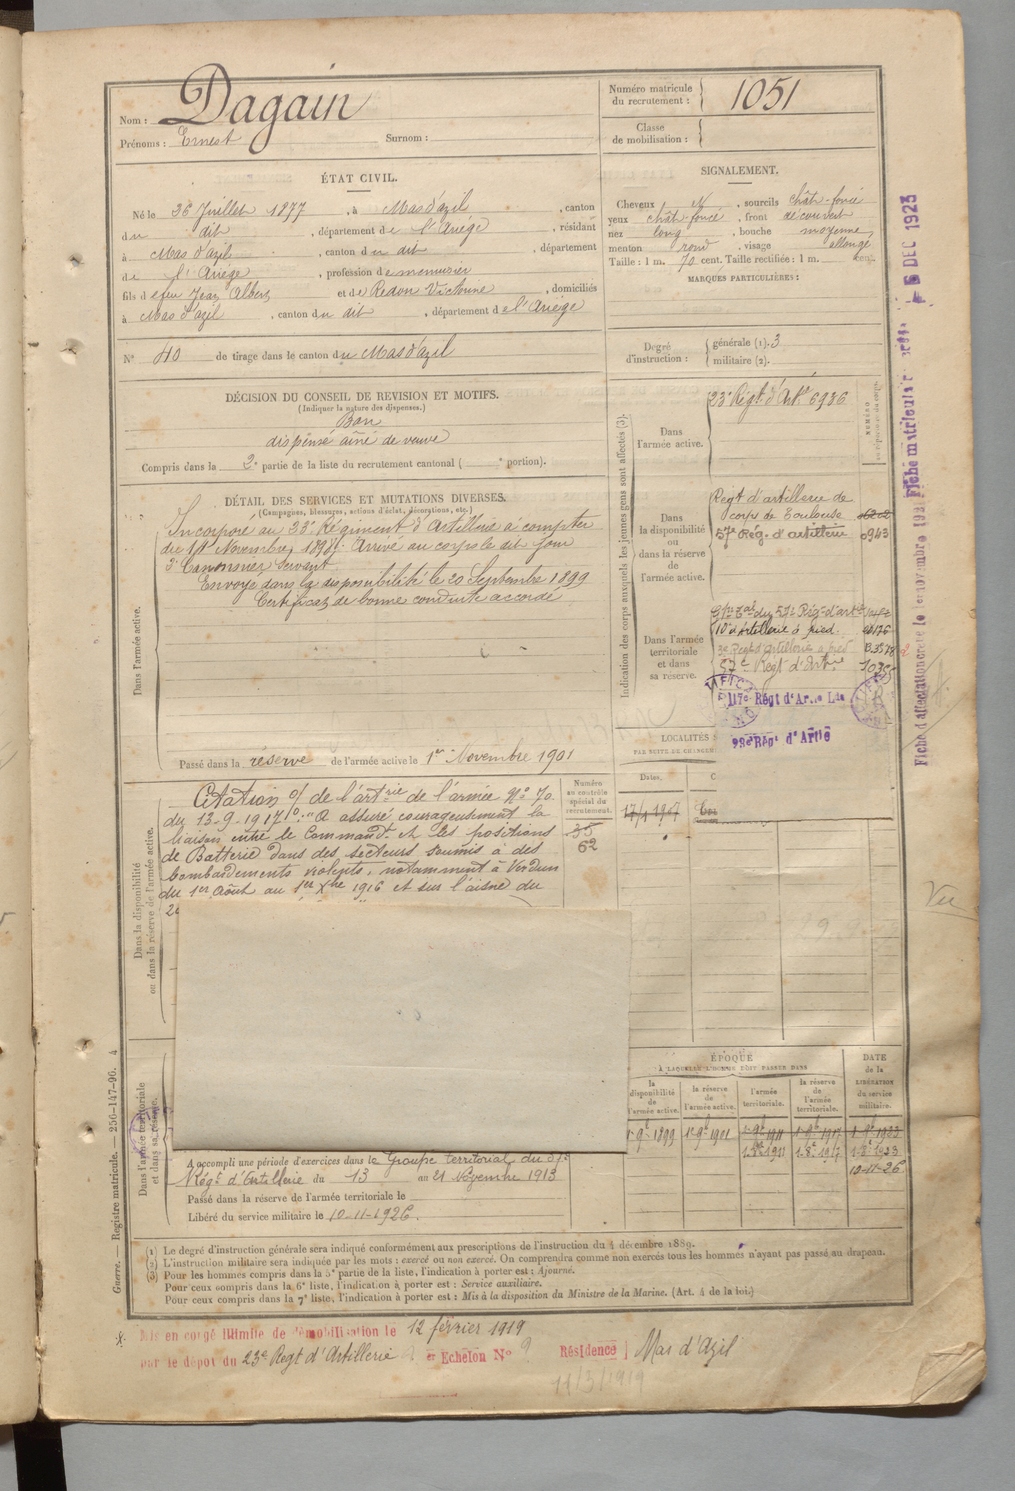 Nom : Dagain
Prénoms : Ernest Surnom :
Numéro matricule du recrutement : 1051
Classe de mobilisation :
ÉTAT CIVIL.
Né le 26 Juillet 1877, à Mas d'azil, canton
du dit, département de l'Ariége, résidant
à Mas d'azil, canton du dit, département
de l'Ariége, profession de menuisier
fils de feu Jean Albert et de Redon Victorine, domiciliés
à Mas d'azil, canton du dit, département de l'Ariége
N° 40 de tirage dans le canton du Mas d'azil
SIGNALEMENT.
Cheveux N, sourcils chât-foncé
yeux chât-foncé, front découvert
nez long, bouche moyenne
menton rond, visage allongé
Taille : 1 m. 70 cent. Taille rectifiée : 1 m. cent.
MARQUES PARTICULIÈRES :
Degré d'instruction : générale (1). 3
militaire (2).
DÉCISION DU CONSEIL DE REVISION ET MOTIFS.
(Indiquer la nature des dispenses.)
Bon
dispensé aîné de veuve
Compris dans la 2e partie de la liste du recrutement cantonal ( e portion).
DÉTAIL DES SERVICES ET MUTATIONS DIVERSES.
(Campagnes, blessures, actions d'éclat, décorations, etc.)
Dans l'armée active.
Incorporé au 23e Régiment d'Artillerie à compter
du 1er Novembre 1898. Arrivé au corps le dit jour
2e Canonnier Servant.
Envoyé dans la disponibilité le 20 Septembre 1899
Certificat de bonne conduite accordé
Passé dans la réserve de l'armée active le 1er Novembre 1901
Indication des corps auxquels les jeunes gens sont affectés (3).
NUMÉRO
Dans l'armée active.
23e Régt d'Arte 6936
Dans la disponibilité ou dans la réserve de l'armée active.
Régt d'artillerie de
corps de Toulouse
57e Rég. d'artillerie 0943
Dans l'armée territoriale et dans sa réserve.
Gpe Tal du 57e Rég. d'arte
10e d'Artillerie à pied.
3e Regt d'artillerie à pied
57e Regt d'Artrie
117e Régt d'Artie Lde
23e Régt d'Artie
LOCALITÉS
PAR SUITE DE CHANGEM
Dates.
Dans la disponibilité ou dans la réserve de l'armée active.
Numéro au contrôle spécial du recrutement.
35
62
Citation o/ de l'artrie de l'armée No 70
du 13-9-1917 : "A assuré courageusement la
liaison entre le Commandt et les positions
de Batterie dans des secteurs soumis à des
bombardements violents, notamment à Verdun
du 1er Août au 1er Xbre 1916 et sur l'aisne du
Dans l'armée territoriale et dans sa réserve.
A accompli une période d'exercices dans le Groupe territorial du 57e
Régt d'Artillerie du 13 au 21 Novembre 1913
Passé dans la réserve de l'armée territoriale le
Libéré du service militaire le 10-11-1926.
ÉPOQUE
À LAQUELLE L'HOMME DOIT PASSER DANS
la disponibilité de l'armée active.
la réserve de l'armée active.
l'armée territoriale.
la réserve de l'armée territoriale.
DATE de la LIBÉRATION du service militaire.
1-9e 1899 1-9e 1901 1-9e 1911 1-9e 1917 1-9e 1923
10-11-26
(1) Le degré d'instruction générale sera indiqué conformément aux prescriptions de l'instruction du 4 décembre 1889.
(2) L'instruction militaire sera indiquée par les mots : exercé ou non exercé. On comprendra comme non exercés tous les hommes n'ayant pas passé au drapeau.
(3) Pour les hommes compris dans la 5e partie de la liste, l'indication à porter est : Ajourné.
Pour ceux compris dans la 6e liste, l'indication à porter est : Service auxiliaire.
Pour ceux compris dans la 7e liste, l'indication à porter est : Mis à la disposition du Ministre de la Marine. (Art. 4 de la loi.)
Mis en congé illimité de démobilisation le 12 février 1919
par le dépôt du 23e Regt d'Artillerie Echelon No 9 Résidence Mas d'Azil
11/3/1919
Guerre. — Registre matricule. — 256-147-96. 4
Vu